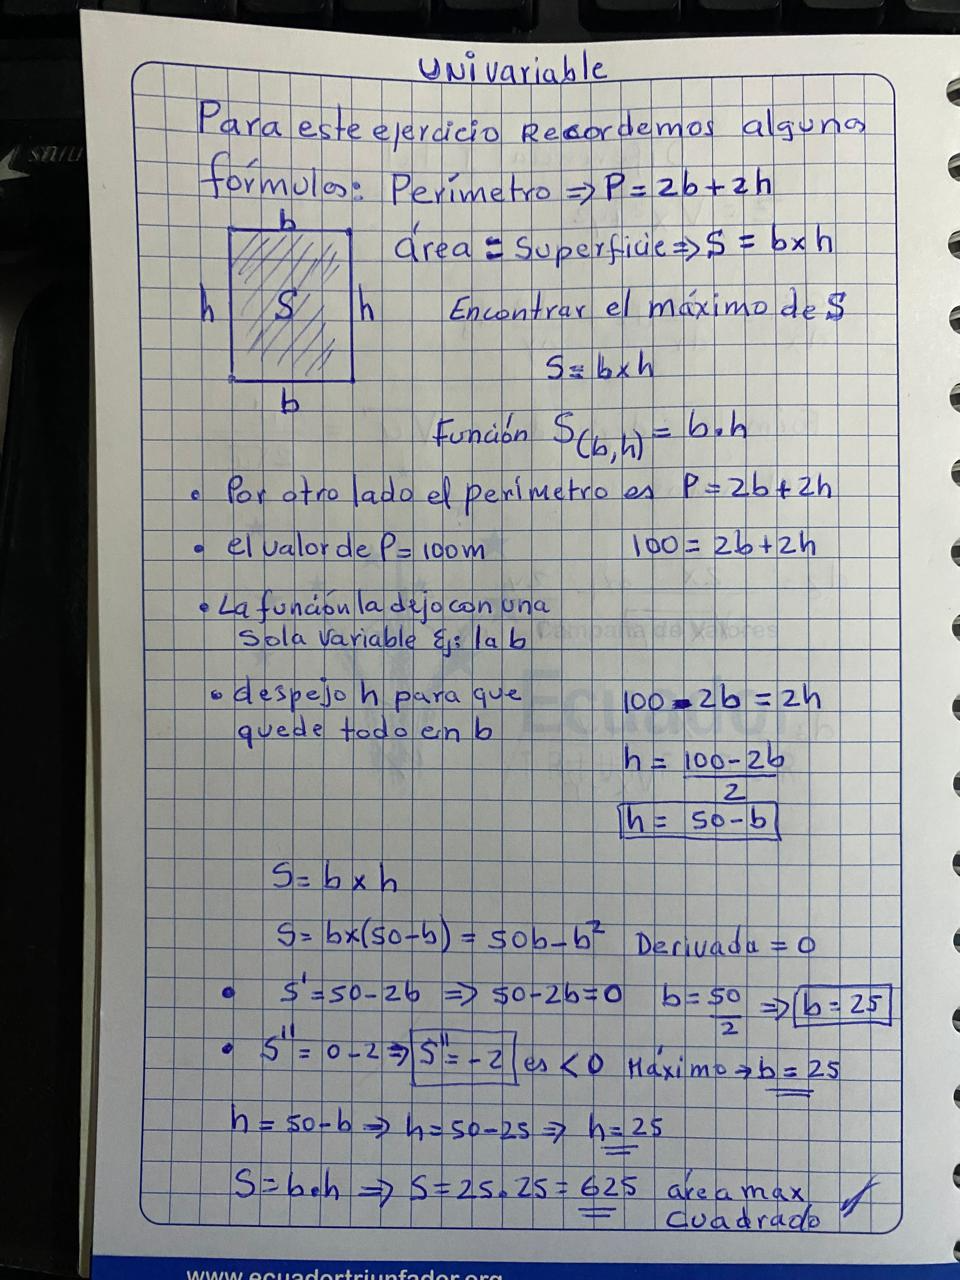 UNivariable
Para este ejercicio Recordemos algunas
fórmulas: Perímetro ⇒ P = 2b + 2h
b
área = Superficie ⇒ S = b x h
h S h Encontrar el máximo de S
S = b x h
b
Función S(b,h) = b.h
• Por otro lado el perímetro es P = 2b + 2h
• el valor de P = 100m 100 = 2b + 2h
• La función la dejo con una
Sola variable Ej: la b
Campaña de Valores
• despejo h para que 100 - 2b = 2h
Ecuador
quede todo en b
h = 100 - 2b
2
h = 50 - b
S = b x h
S = bx(50-b) = 50b - b² Derivada = 0
• S' = 50 - 2b ⇒ 50 - 2b = 0 b = 50/2 ⇒ b = 25
• S'' = 0 - 2 ⇒ S'' = -2 es < 0 Máximo → b = 25
h = 50 - b ⇒ h = 50 - 25 ⇒ h = 25
S = b.h ⇒ S = 25.25 = 625 área max
cuadrado
www.ecuadortriunfador.org